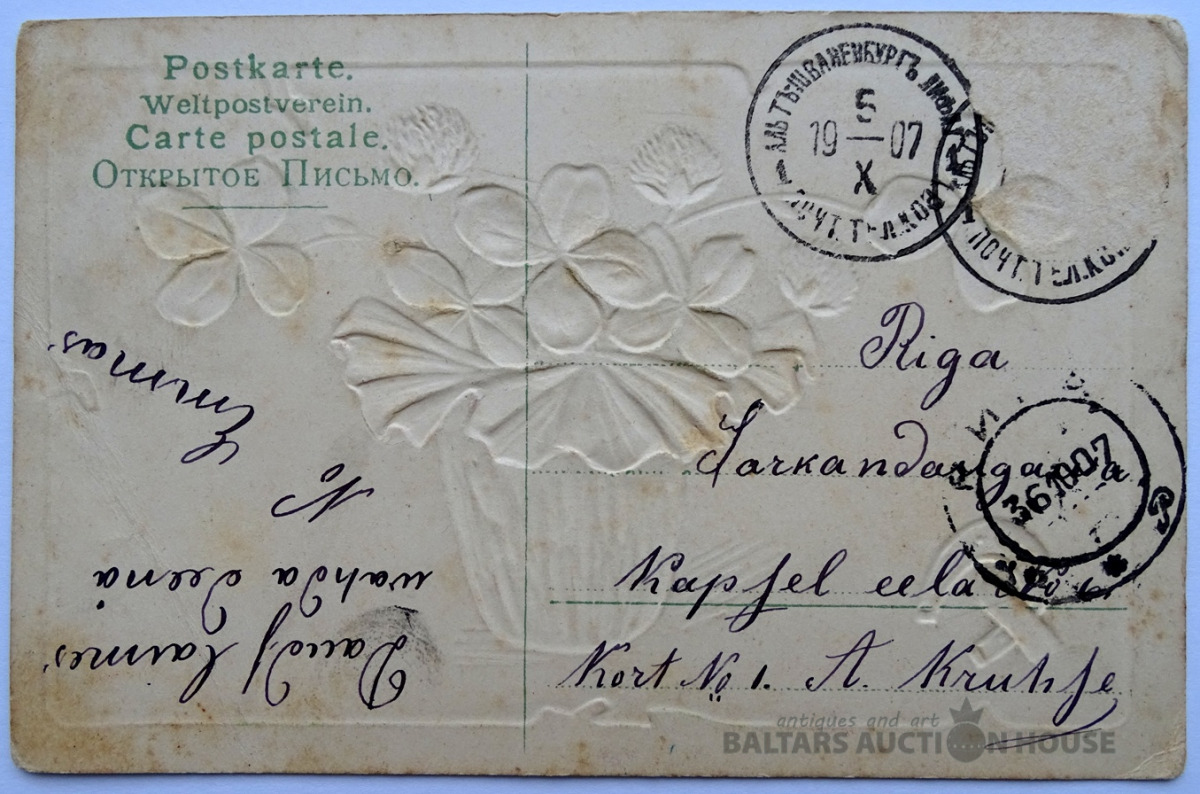 Postkarte.
Weltpostverein.
Carte postale.
Открытое Письмо.
АЛЬТЪ-ШВАНЕНБУРГЪ ЛИФЛ.
5
19 — 07
X
1 ПОЧТ. ТЕЛ. КОН. 1
1 ПОЧТ. ТЕЛ. КОН.
Riga
Sarkandaugawa
Kapſel eela No 6
Kort No 1. A. Kruhſe
РИГА
6 10 07
Daudſ laimes
wahda deenâ
No
Emmas
antiques and art
BALTARS AUCTION HOUSE